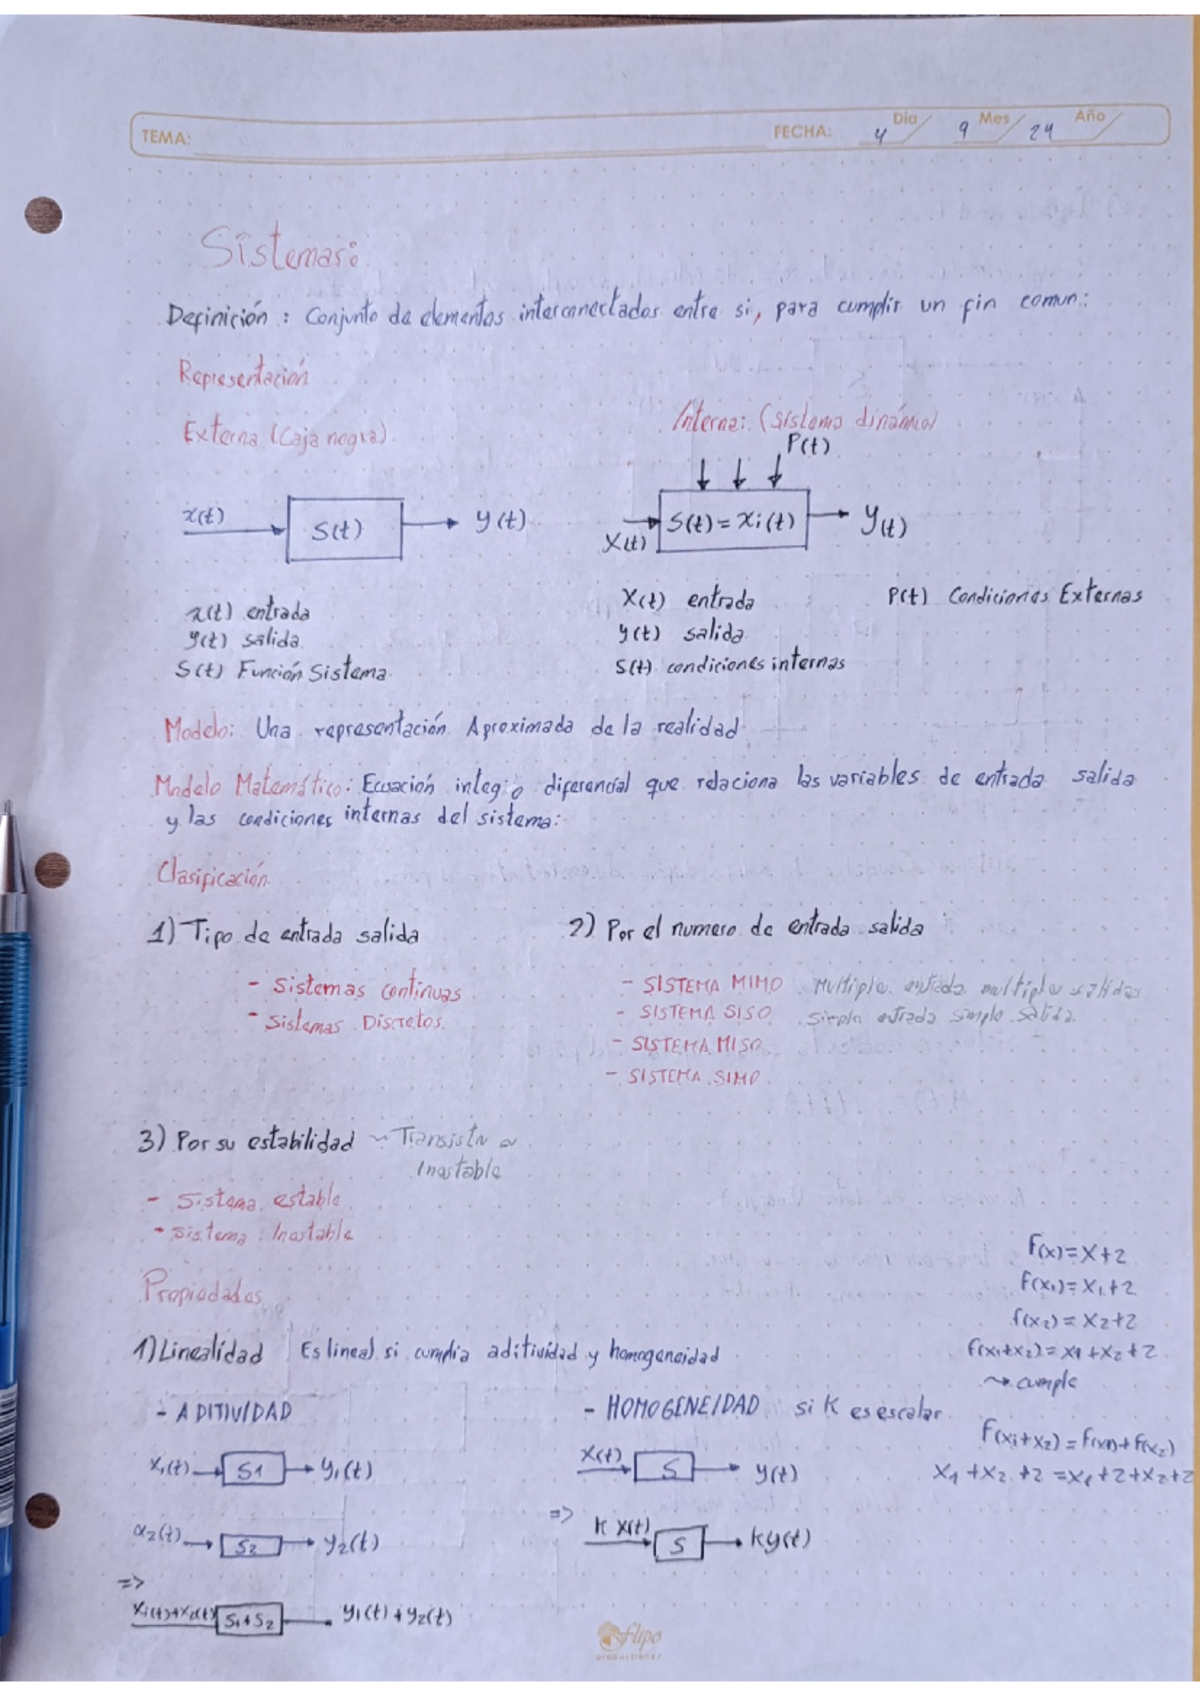 TEMA:
FECHA: 4 Día 9 Mes 24 Año
Sistemas:
Definición: Conjunto de elementos interconectados entre si, para cumplir un fin comun:
Representación
Externa (Caja negra)
Interna: (sistema dinámico)
P(t)
x(t) S(t) y(t)
X(t) S(t) = Xi(t) y(t)
x(t) entrada
y(t) salida
S(t) Función Sistema
X(t) entrada
y(t) salida
S(t) condiciones internas
P(t) Condiciones Externas
Modelo: Una representación Aproximada de la realidad
Modelo Matemático: Ecuación integro diferencial que relaciona las variables de entrada salida
y las condiciones internas del sistema:
Clasificación
1) Tipo de entrada salida
- Sistemas continuas
- Sistemas Discretos
2) Por el numero de entrada salida
- SISTEMA MIMO Multiple entrada multiple salidas
- SISTEMA SISO simple entrada simple salida
- SISTEMA MISO
- SISTEMA SIMO
3) Por su estabilidad
Inestable
- Sistema estable
- Sistema Inestable
Propiedades
1) Linealidad Es lineal si cumplia aditividad y homogeneidad
- ADITIVIDAD
x₁(t) S1 y₁(t)
x₂(t) S2 y₂(t)
=>
x₁(t)+x₂(t) S1+S2 y₁(t)+y₂(t)
- HOMOGENEIDAD si K es escalar
X(t) S y(t)
=> K X(t) S Ky(t)
F(x)=X+2
F(x₁)=X₁+2
f(x₂)=X₂+2
F(x₁+x₂)=x₁+x₂+2
↝ cumple
F(x₁+x₂)=f(x₁)+f(x₂)
x₁+x₂+2=x₁+2+x₂+2
flipo
producciones